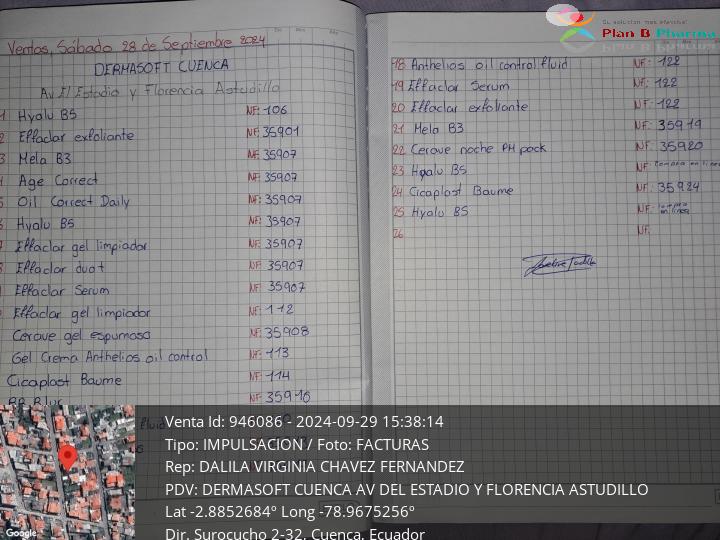 Ventas, Sábado 28 de Septiembre 2024
DERMASOFT CUENCA
Av El Estadio y Florencia Astudillo
1 Hyalu B5 NF: 106
2 Effaclar exfoliante NF: 35901
3 Mela B3 NF: 35907
Age Correct NF: 35907
Oil Correct Daily NF: 35907
Hyalu B5 NF: 35907
Effaclar gel limpiador NF: 35907
Effaclar duo+ NF: 35907
Effaclar Serum NF: 35907
Effaclar gel limpiador NF: 112
Cerave gel espumoso NF: 35908
Gel Crema Anthelios oil control NF: 113
Cicaplast Baume NF: 114
NF: 35910
Su solución más efectiva!
Plan B Pharma
18 Anthelios oil control fluid NF: 122
19 Effaclar Serum NF: 122
20 Effaclar exfoliante NF: 122
21 Mela B3 NF: 35919
22 Cerave noche PM pack NF: 35920
23 Hyalu B5 NF: Compra en linea
24 Cicaplast Baume NF: 35924
25 Hyalu B5 NF: Compra en linea
26 NF:
fluid
Venta Id: 946086 - 2024-09-29 15:38:14
Tipo: IMPULSACION / Foto: FACTURAS
Rep: DALILA VIRGINIA CHAVEZ FERNANDEZ
PDV: DERMASOFT CUENCA AV DEL ESTADIO Y FLORENCIA ASTUDILLO
Lat -2.8852684º Long -78.9675256º
Dir. Surocucho 2-32, Cuenca, Ecuador
Google